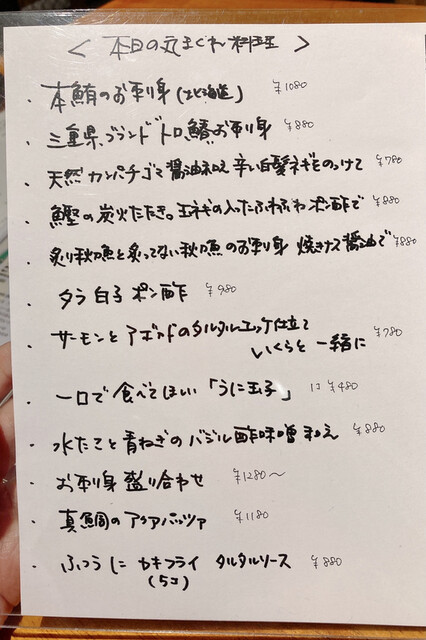 ＜ 本日の気まぐれ料理 ＞
・ 本鮪のお刺身 (北海道) ¥1080
・ 三重県、ブランド トロ鰆お刺身 ¥880
・ 天然 カンパチゴマ醤油和え 辛い白髪ネギをのっけて ¥780
・ 鰹の炭火たたき。玉ネギの入ったふわふわポン酢で ¥880
・ 炙り秋刀魚と炙ってない秋刀魚のお刺身 焼きナス醤油で ¥880
・ タラ白子ポン酢 ¥980
・ サーモンとアボカドのタルタルユッケ仕立て ¥780
いくらと一緒に
・ 一口で食べてほしい「うに玉子」 1コ ¥480
・ 水たこと青ねぎのバジル酢味噌和え ¥880
・ お刺身盛り合わせ ¥1280〜
・ 真鯛のアクアパッツァ ¥1180
・ ふつうに カキフライ タルタルソース ¥880
(5コ)